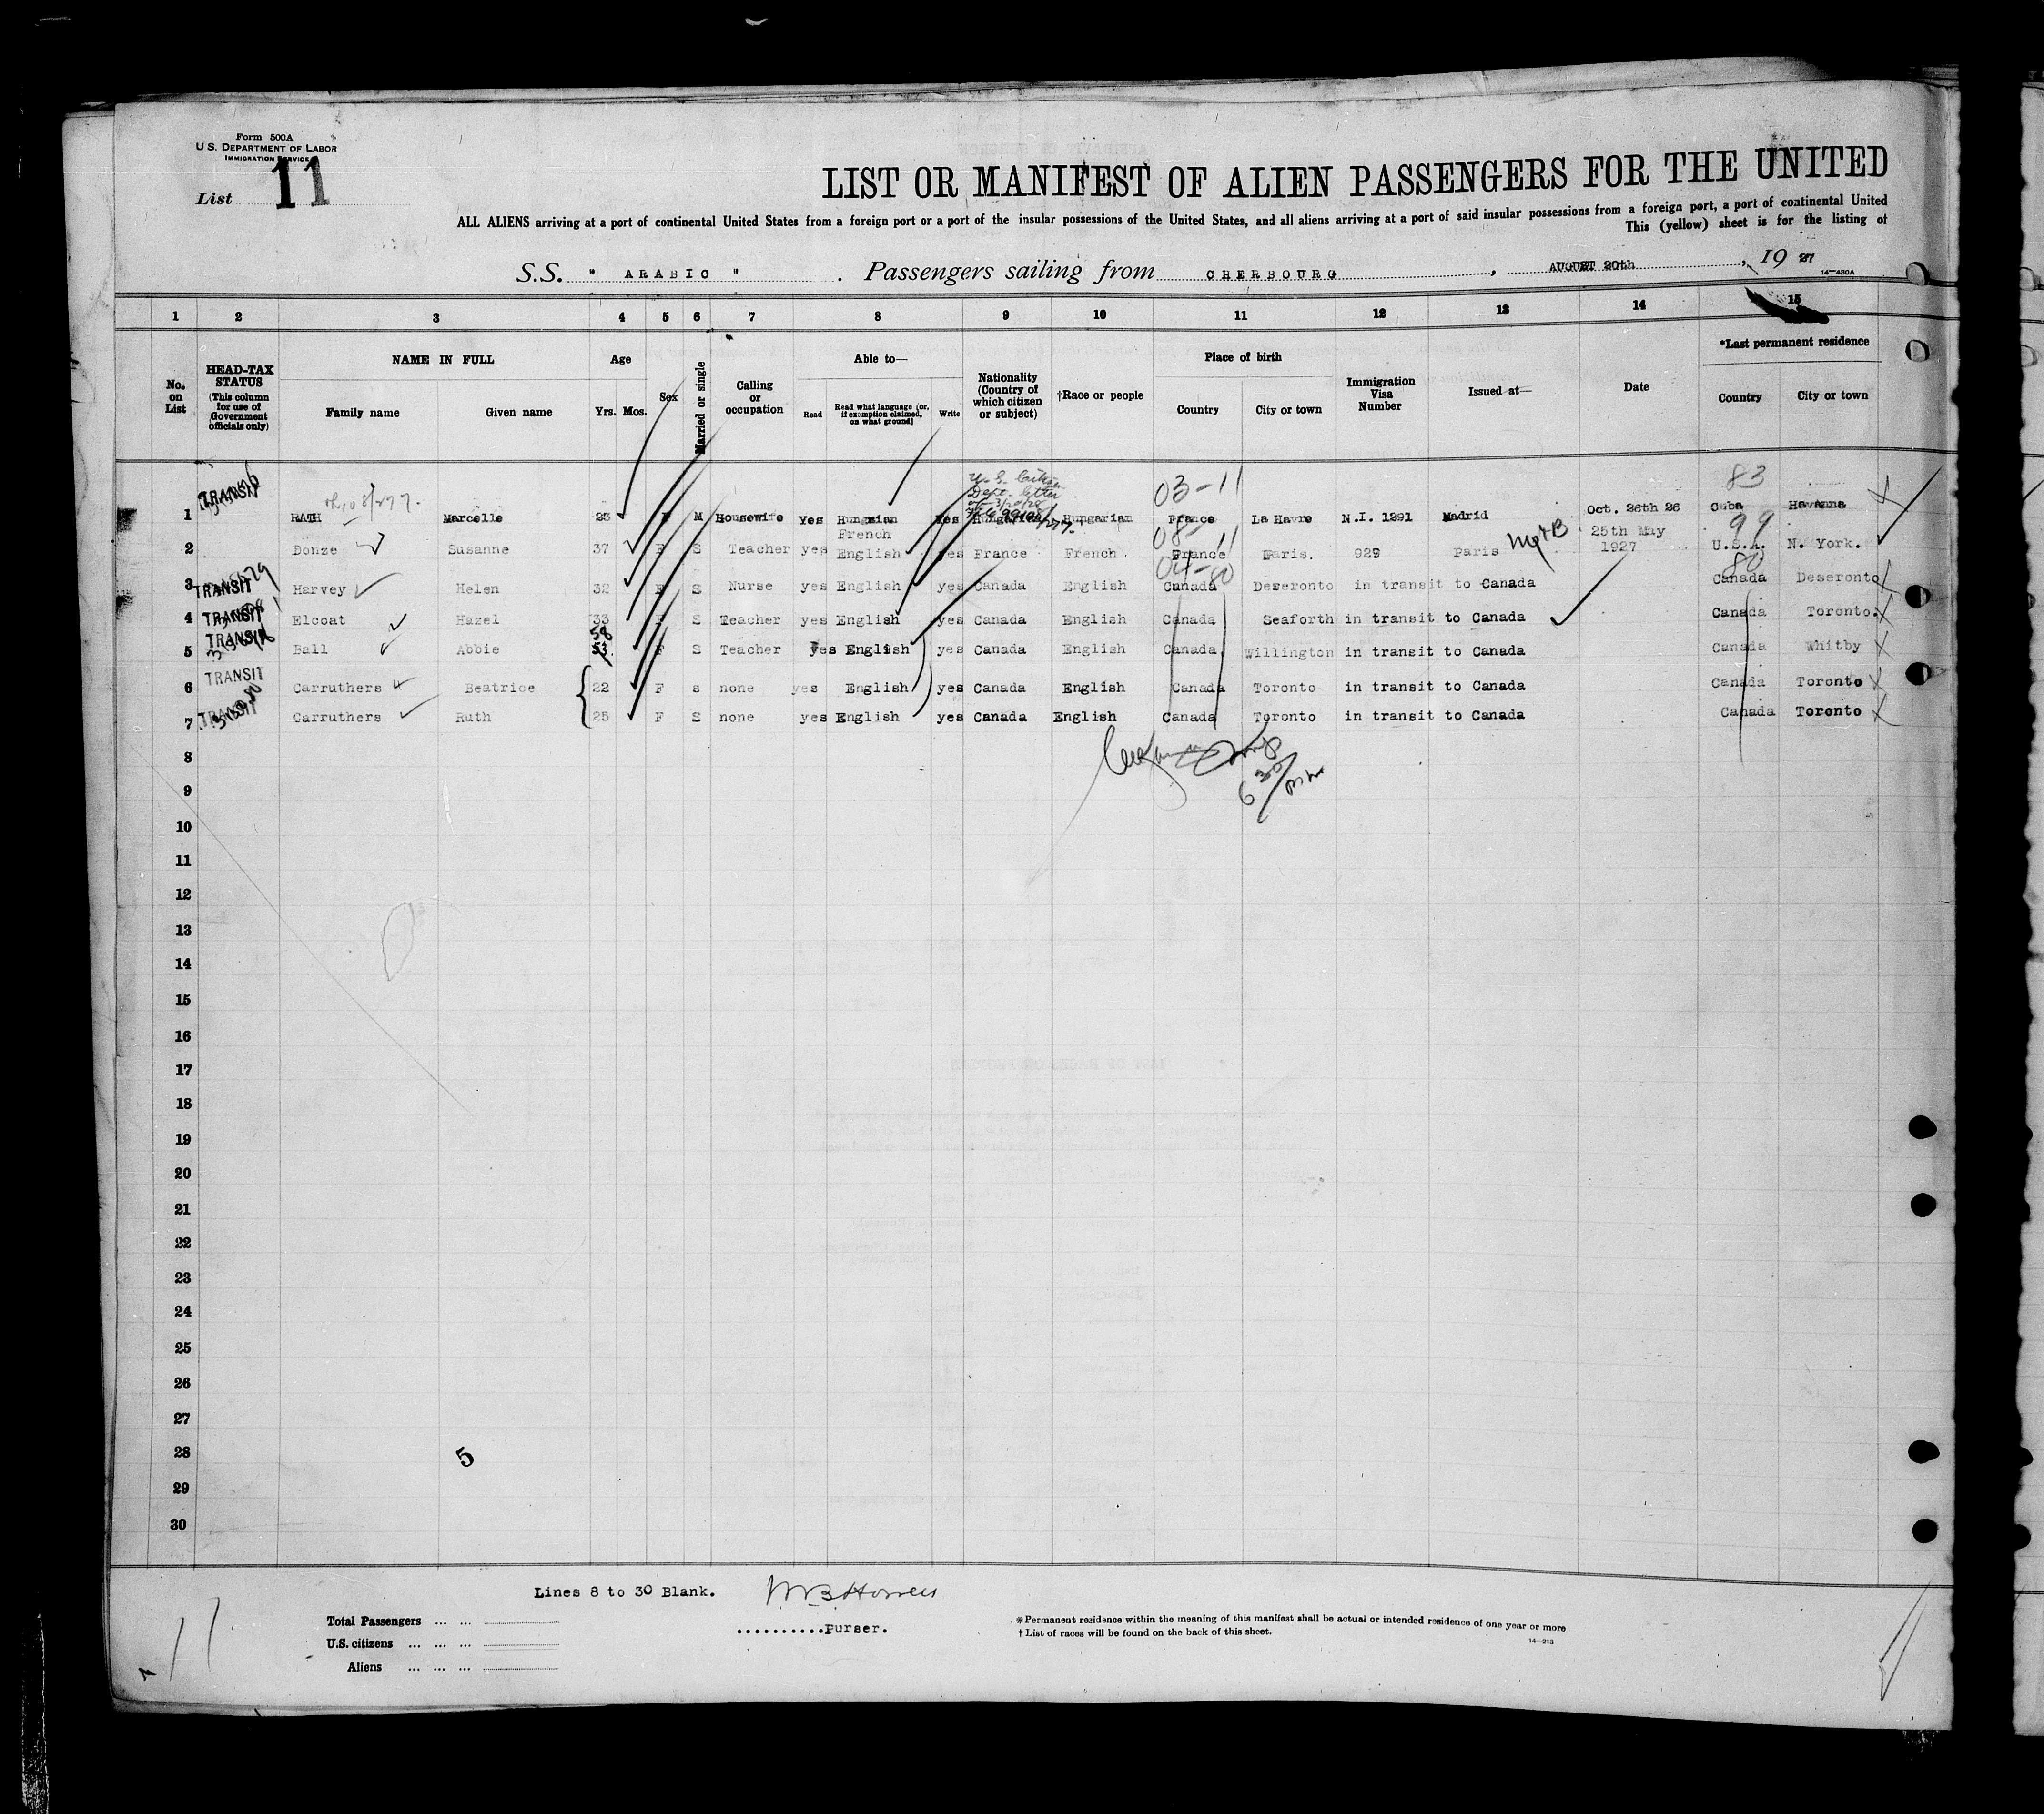 Form 500A
U.S. DEPARTMENT OF LABOR
IMMIGRATION SERVICE
List 11
LIST OR MANIFEST OF ALIEN PASSENGERS FOR THE UNITED
ALL ALIENS arriving at a port of continental United States from a foreign port or a port of the insular possessions of the United States, and all aliens arriving at a port of said insular possessions from a foreign port, a port of continental United
This (yellow) sheet is for the listing of
S.S. " ARABIC " . Passengers sailing from CHERBOURG , AUGUST 20th , 19 27
14—430A
1 2 3 4 5 6 7 8 9 10 11 12 13 14 15
No. on List
HEAD-TAX STATUS (This column for use of Government officials only)
NAME IN FULL
Family name Given name
Age
Yrs. Mos.
Sex
Married or single
Calling or occupation
Able to—
Read
Read what language [or, if exemption claimed, on what ground]
Write
Nationality (Country of which citizen or subject)
†Race or people
Place of birth
Country City or town
Immigration Visa Number
Issued at—
Date
*Last permanent residence
Country City or town
U.S. Citizen
Dept. letter
03-11
83
1 TRANSIT RATH Marcelle 25 F M Housewife Yes Hungrian Yes Hungarian Hungarian France La Havre N.I. 1291 Madrid Oct. 26th 26 Cuba Havanna
08-11
99
2 Donze Susanne 37 F S Teacher yes French English yes France French France Paris. 929 Paris 25th May 1927 U.S.A. N. York.
04-80
80
3 TRANSIT Harvey Helen 32 F S Nurse yes English yes Canada English Canada Deseronto in transit to Canada Canada Deseronto
4 TRANSIT Elcoat Hazel 33 F S Teacher yes English yes Canada English Canada Seaforth in transit to Canada Canada Toronto.
58
5 TRANSIT Ball Abbie 53 F S Teacher yes English yes Canada English Canada Willington in transit to Canada Canada Whitby
6 TRANSIT Carruthers Beatrice 22 F s none yes English yes Canada English Canada Toronto in transit to Canada Canada Toronto
7 TRANSIT Carruthers Ruth 25 F S none yes English yes Canada English Canada Toronto in transit to Canada Canada Toronto
8
9
10
11
12
13
14
15
16
17
18
19
20
21
22
23
24
25
26
27
28
5
29
30
Lines 8 to 30 Blank.
Total Passengers ... ...
U.S. citizens ... ... ...
Aliens ... ... ...
..........Purser.
*Permanent residence within the meaning of this manifest shall be actual or intended residence of one year or more
† List of races will be found on the back of this sheet.
14—213
11